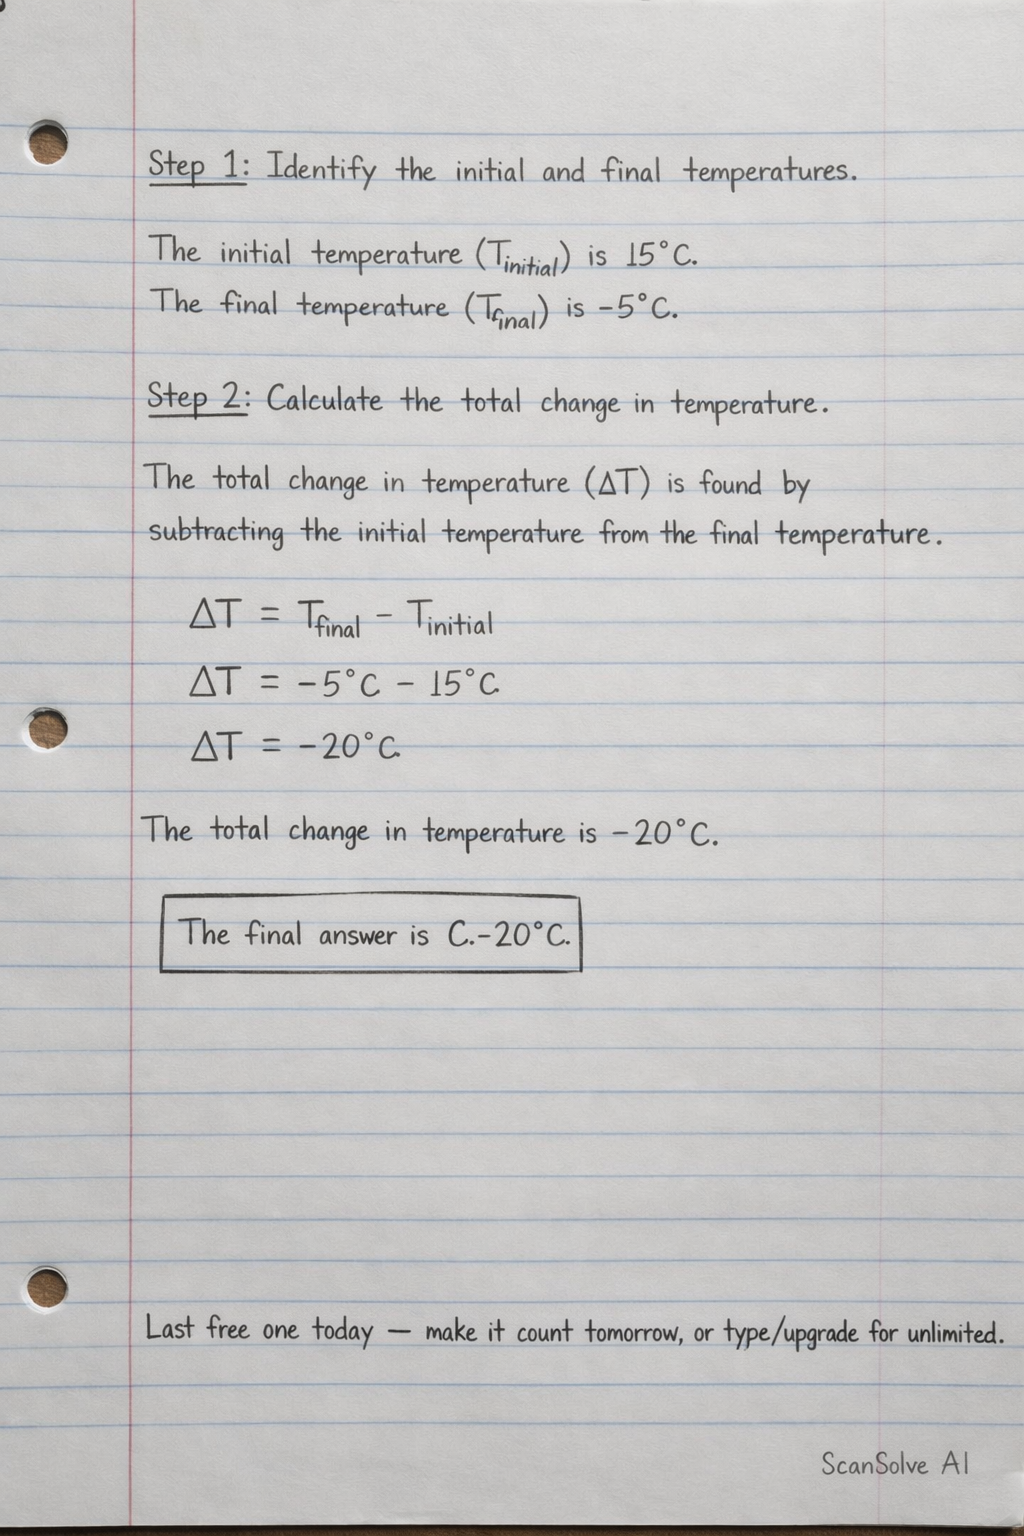 Step 1: Identify the initial and final temperatures.
The initial temperature (Tinitial) is 15°C.
The final temperature (Tfinal) is -5°C.
Step 2: Calculate the total change in temperature.
The total change in temperature (ΔT) is found by
subtracting the initial temperature from the final temperature.
ΔT = Tfinal - Tinitial
ΔT = -5°C - 15°C
ΔT = -20°C
The total change in temperature is -20°C.
The final answer is C.-20°C.
Last free one today — make it count tomorrow, or type/upgrade for unlimited.
ScanSolve AI